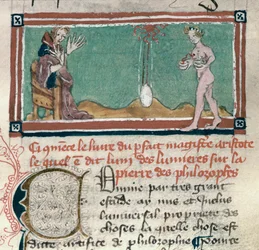 Ci qmēce le liure du pfait magistere aristote
le quel ē dit lum des lumieres sur la
pierre des philozophes
Comme par tres grant
estude ay mis et inclus
luniuersal propriete des
choses la quelle chose est
dicte artifice de philozophes